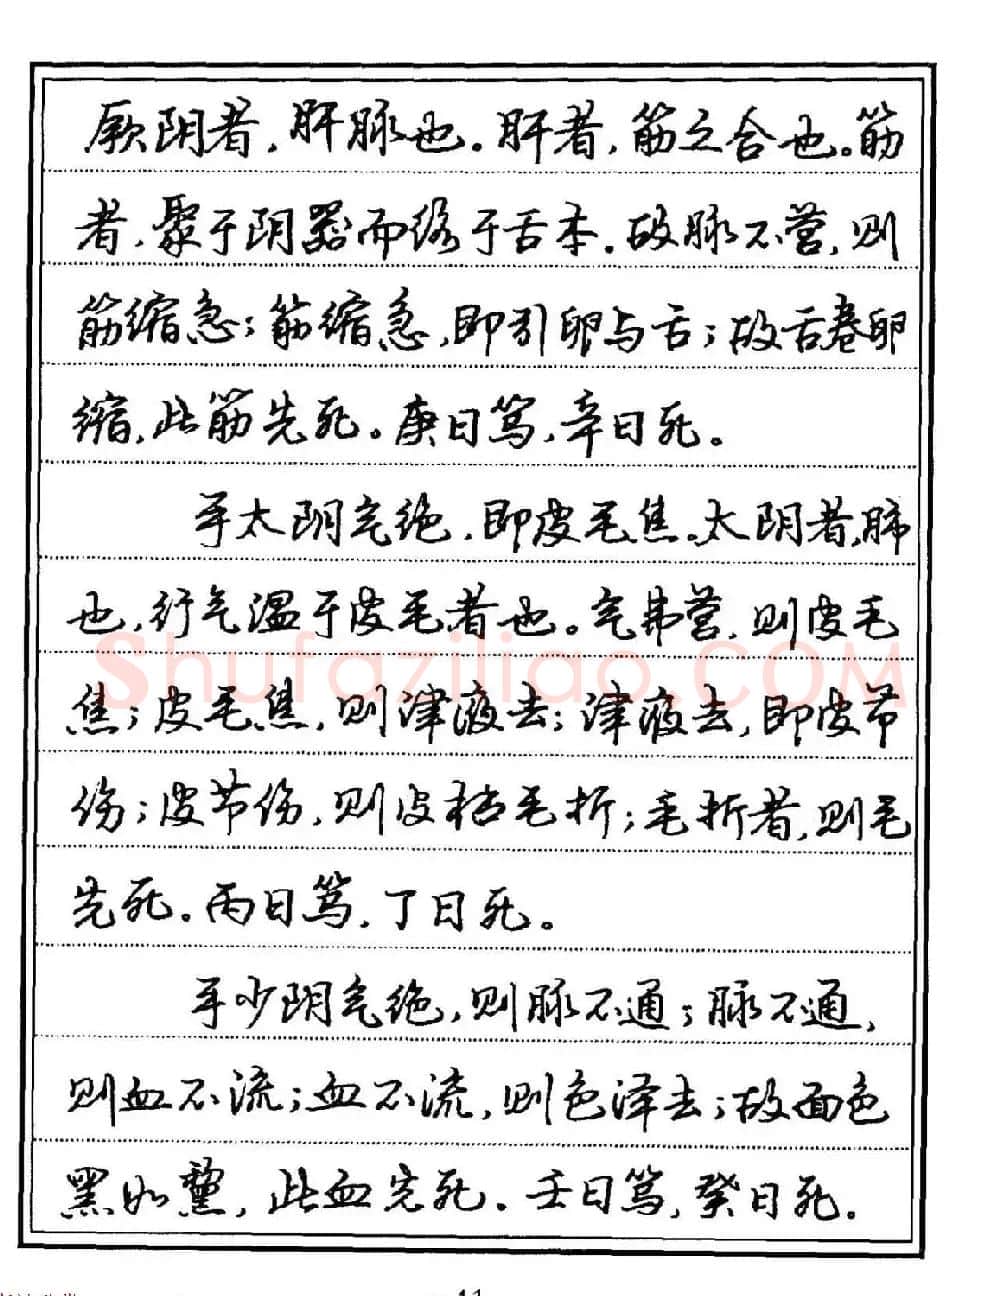 厥阴者，肝脉也。肝者，筋之合也。筋
者，聚于阴器而络于舌本。故脉不营，则
筋缩急；筋缩急，即引卵与舌；故舌卷卵
缩，此筋先死。庚日笃，辛日死。
手太阴气绝，即皮毛焦。太阴者，肺
也，行气温于皮毛者也。气弗营，则皮毛
焦；皮毛焦，则津液去；津液去，即皮节
伤；皮节伤，则皮枯毛折；毛折者，则毛
先死。丙日笃，丁日死。
手少阴气绝，则脉不通；脉不通，
则血不流；血不流，则色泽去；故面色
黑如黧，此血先死。壬日笃，癸日死。
Shufaziliao.COM